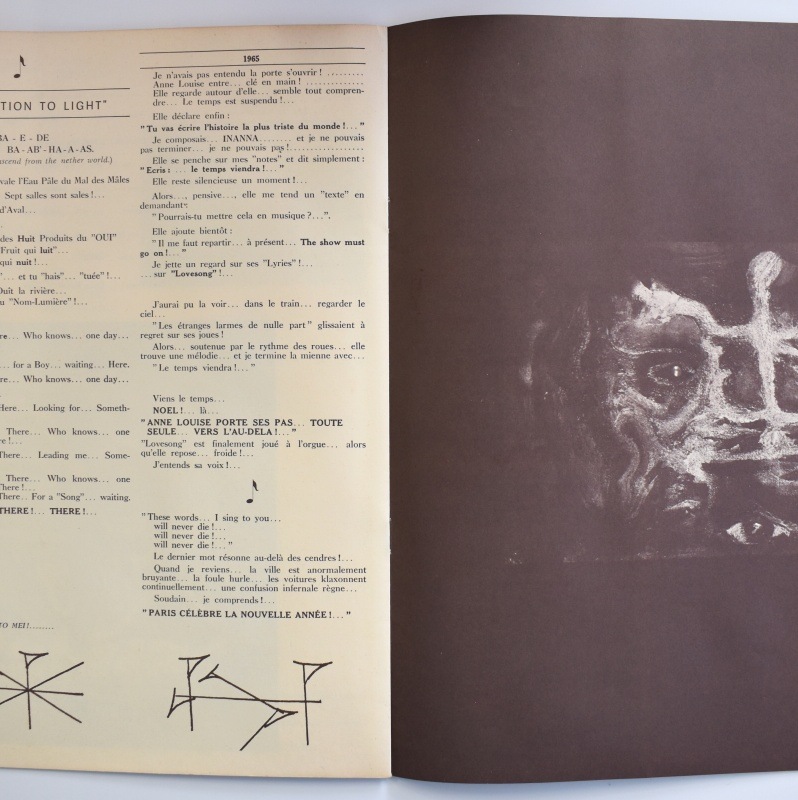 TION TO LIGHT"
BA - E - DE
BA - AB' - HA - A - AS.
ascend from the nether world.)
vale l'Eau Pâle du Mal des Mâles
Sept salles sont sales !...
d'Aval...
des Huit Produits du "OUI"
Fruit qui luit"...
qui nuit !...
"... et tu "hais"... "tuée" !...
uit la rivière...
u "Nom-Lumière" !...
re... Who knows... one day...
... for a Boy... waiting... Here.
re... Who knows... one day...
Here... Looking for... Someth-
There... Who knows... one
re !...
There... Leading me... Some-
There... Who knows... one
here !...
There.. For a "Song"... waiting.
THERE !... THERE !...
TO MEI!........
1965
Je n'avais pas entendu la porte s'ouvrir ! .........
Anne Louise entre... clé en main ! ..............
Elle regarde autour d'elle... semble tout compren-
dre... Le temps est suspendu !...
Elle déclare enfin :
"Tu vas écrire l'histoire la plus triste du monde !... "
Je composais... INANNA........ et je ne pouvais
pas terminer... je ne pouvais pas !..................
Elle se penche sur mes "notes" et dit simplement :
"Ecris : ... le temps viendra !... "
Elle reste silencieuse un moment !...
Alors..., pensive..., elle me tend un "texte" en
demandant :
"Pourrais-tu mettre cela en musique ?...".
Elle ajoute bientôt :
"Il me faut repartir... à présent... The show must
go on !... "
Je jette un regard sur ses "Lyrics" !...
... sur "Lovesong" !...
J'aurai pu la voir... dans le train... regarder le
ciel...
"Les étranges larmes de nulle part" glissaient à
regret sur ses joues !
Alors... soutenue par le rythme des roues... elle
trouve une mélodie... et je termine la mienne avec...
"Le temps viendra !... "
Viens le temps...
NOEL !... là...
"ANNE LOUISE PORTE SES PAS... TOUTE
SEULE... VERS L'AU-DELA !... "
"Lovesong" est finalement joué à l'orgue... alors
qu'elle repose... froide !...
J'entends sa voix !...
"These words... I sing to you...
will never die !...
will never die !...
will never die !... "
Le dernier mot résonne au-delà des cendres !...
Quand je reviens... la ville est anormalement
bruyante... la foule hurle... les voitures klaxonnent
continuellement... une confusion infernale règne...
Soudain... je comprends !...
"PARIS CÉLÈBRE LA NOUVELLE ANNÉE !... "